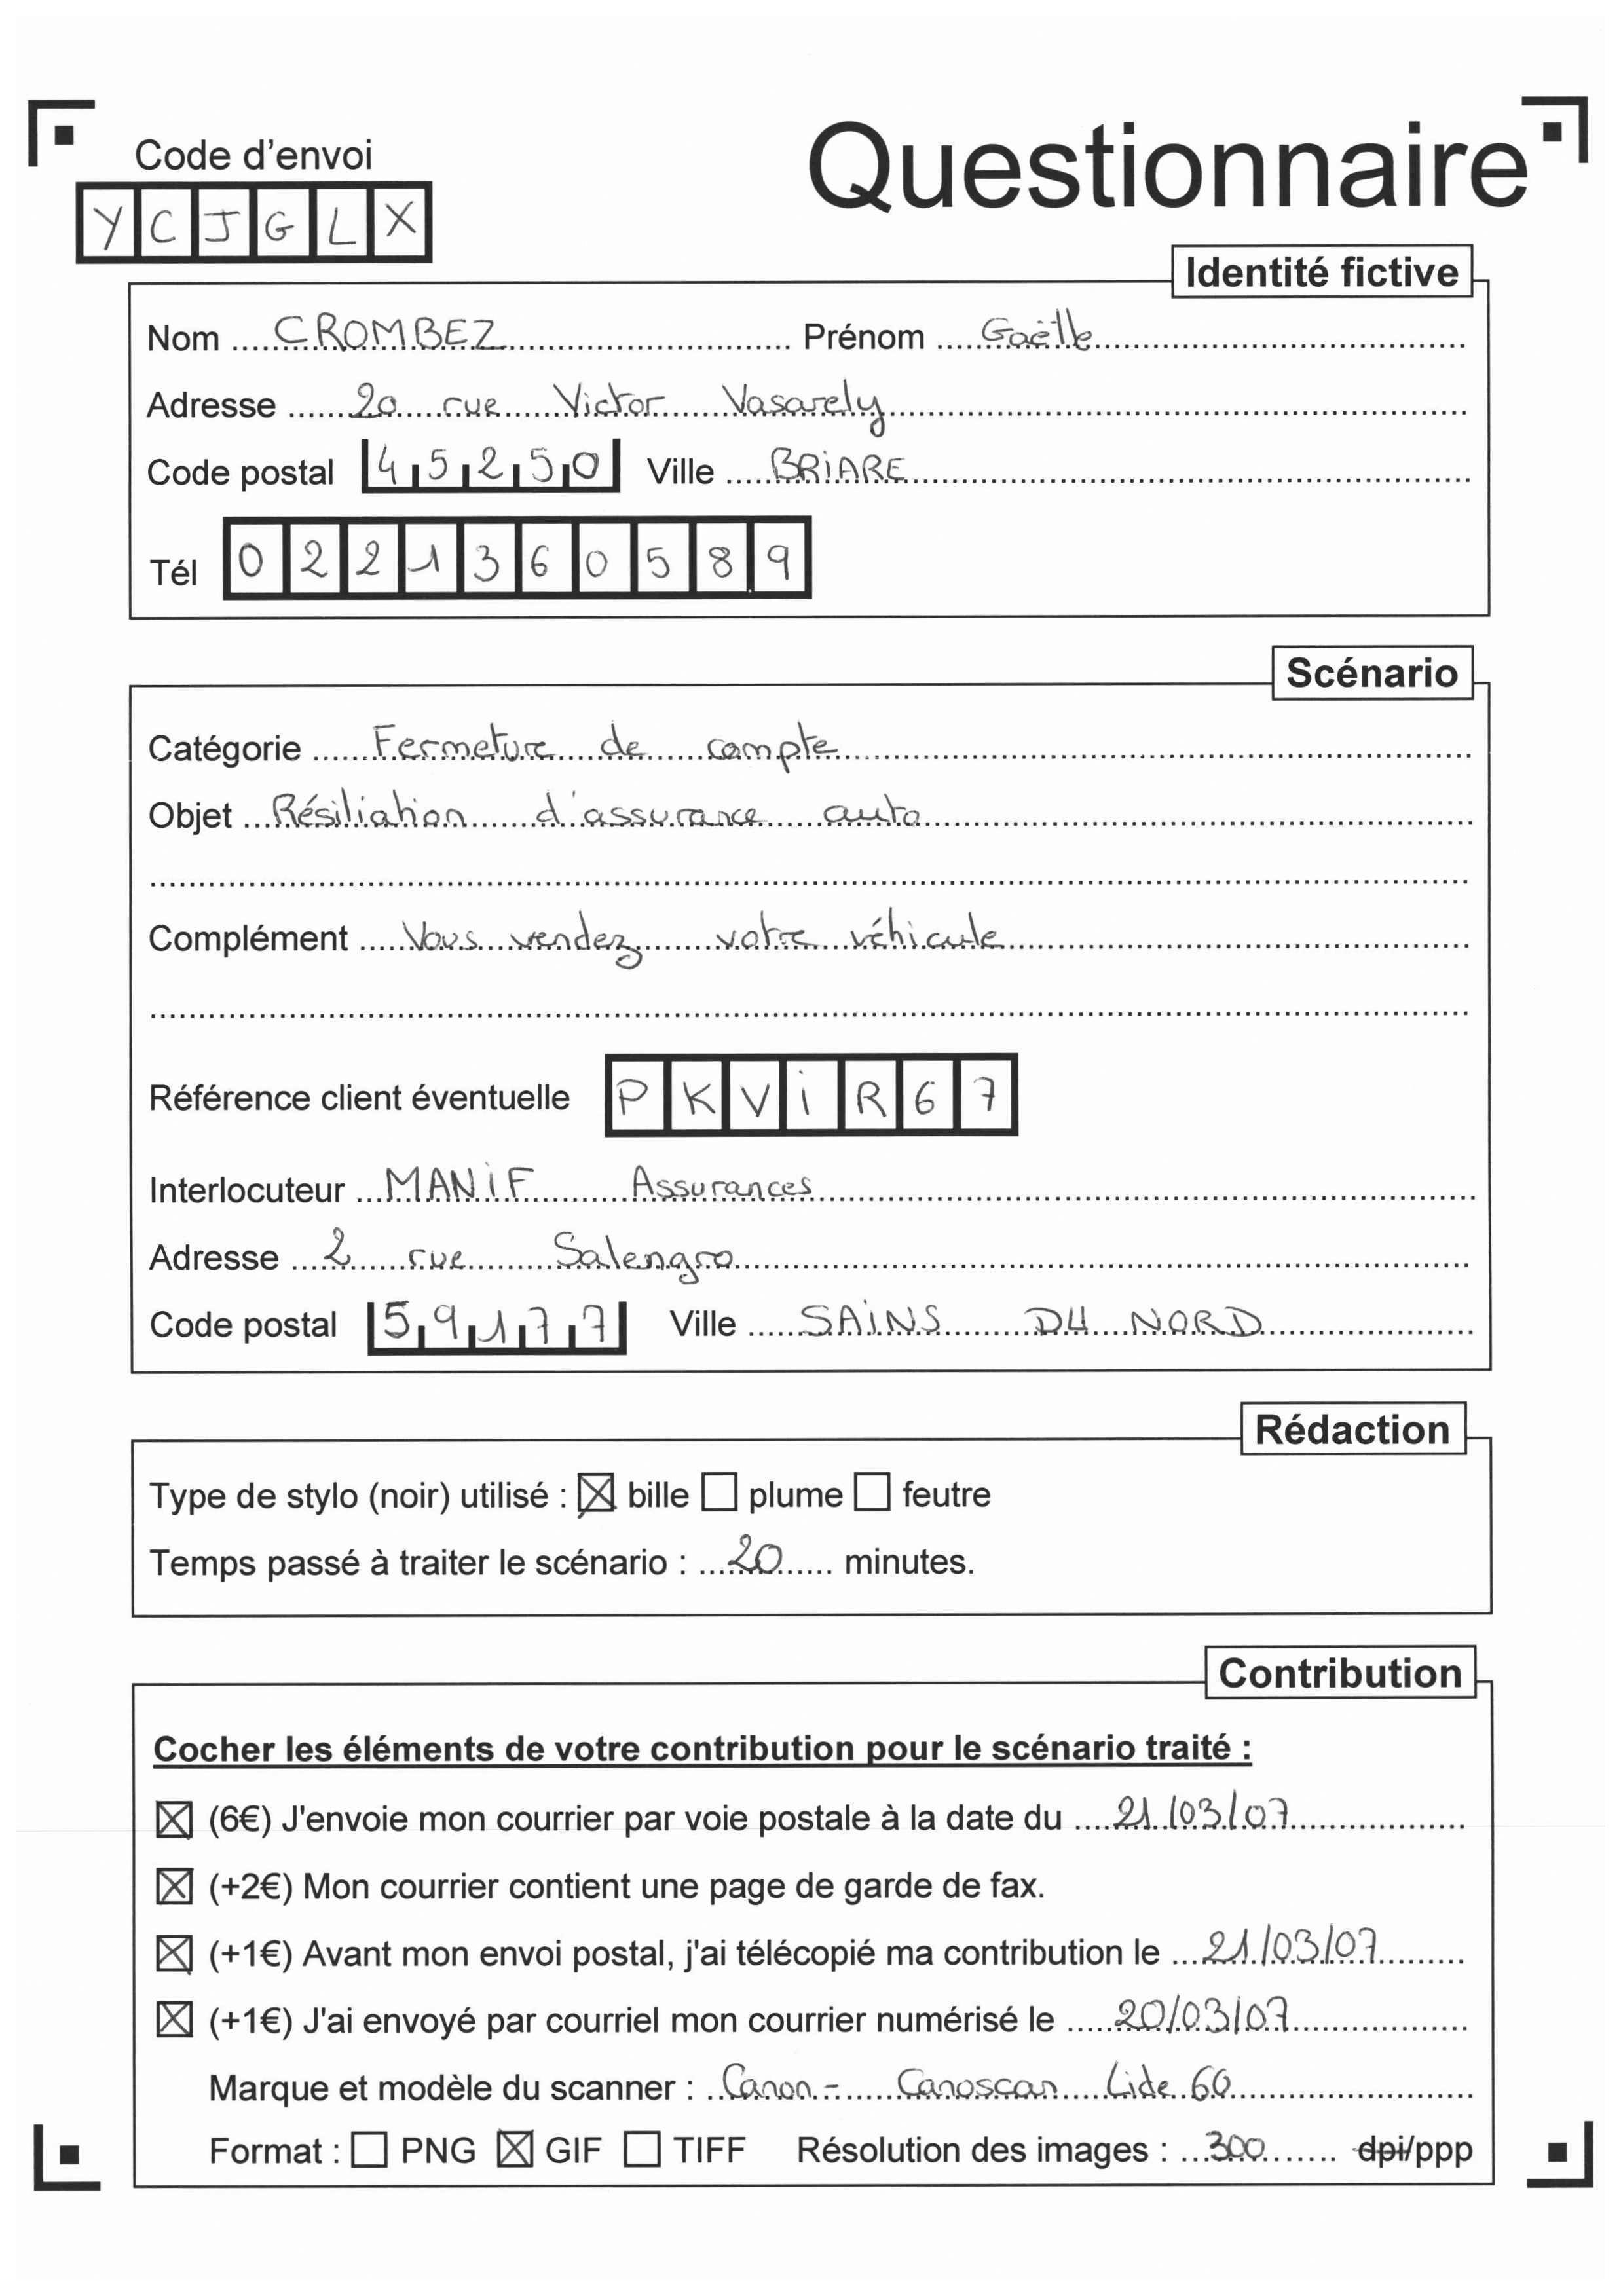 Code d'envoi
Questionnaire
YCJGLX
Identité fictive
Nom CROMBEZ Prénom Gaëlle
Adresse 20 rue Victor Vasarely
Code postal 45250 Ville BRiARE
Tél 0221360589
Scénario
Catégorie Fermeture de compte
Objet Résiliation d'assurance auto
Complément Vous vendez votre véhicule
Référence client éventuelle PKViR67
Interlocuteur MANiF Assurances
Adresse 2 rue Salengro
Code postal 59177 Ville SAiNS DU NORD
Rédaction
Type de stylo (noir) utilisé : ☒ bille ☐ plume ☐ feutre
Temps passé à traiter le scénario : 20 minutes.
Contribution
Cocher les éléments de votre contribution pour le scénario traité :
☒ (6€) J'envoie mon courrier par voie postale à la date du 21/03/07
☒ (+2€) Mon courrier contient une page de garde de fax.
☒ (+1€) Avant mon envoi postal, j'ai télécopié ma contribution le 21/03/07
☒ (+1€) J'ai envoyé par courriel mon courrier numérisé le 20/03/07
Marque et modèle du scanner : Canon - Canoscan Lide 60
Format : ☐ PNG ☒ GIF ☐ TIFF Résolution des images : 300 dpi/ppp